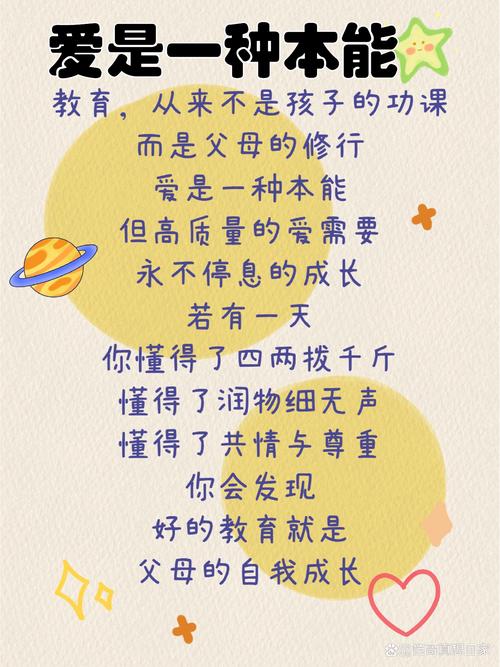 爱是一种本能
教育，从来不是孩子的功课
而是父母的修行
爱是一种本能
但高质量的爱需要
永不停息的成长
若有一天
你懂得了四两拨千斤
懂得了润物细无声
懂得了共情与尊重
你会发现
好的教育就是
父母的自我成长